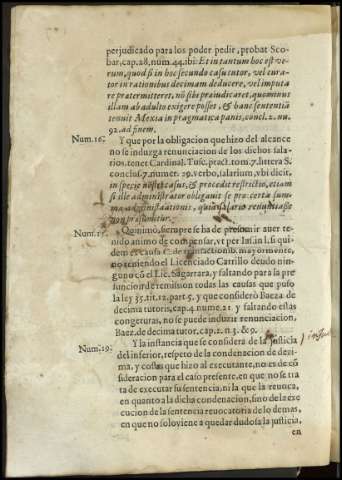 perjudicado para los poder pedir, probat Sco-
bar, cap. 28, num. 44. ibi: Et in tantum hoc est ve-
rum, quod si in hoc secundo casu tutor, vel cura-
tor in rationibus decimam deducere, vel imputa
re pratermitteret, nõ sibi præiudicaret, quominus
illam ab adulto exigere posset, & hanc sententiã
tenuit Mexia in pragmatica panis, concl. 2. nu.
92. ad finem.
Num. 16. Y que por la obligacion que hizo del alcance
no se induzga renunciacion de los dichos sala-
rios, tenet Cardinal. Tusc. pract. tom. 7. littera S.
conclus. 7. numer. 29. verbo, salarium, vbi dicit,
in specie nostri casus, & procedit restrictio, etiam
si ille administrator obligauit se pro certa sum-
ma administrationis, quia salario renuntiasse
non præsumitur.
Num. Quinimo, siempre se ha de presumir auer te-
nido animo de compensar, vt per Ias. in l. si qui-
dem ex causa C. de transactionib. mayormente,
no teniendo el Licenciado Carrillo deudo nin-
guno cõ el Lic. Sagarrara, y faltando para la pre
suncion de remission todas las causas que puso
la ley 35. tit. 12. part. 5. y que considerò Baeza de
decima tutoris, cap. 4. nume. 21. y faltando estas
congeturas, no se puede induzir renunciacion,
Baez. de decima tutor, cap. 2. n. 3. & 9.
Num. 19. Y la instancia que se considera de la justicia
del inferior, respeto de la condenacion de dezi-
ma, y costas que hizo al executante, no es de cõ
sideracion para el caso presente, en que no se tra
ta de executar su sentencia, ni la que la reuoca,
en quanto a la dicha condenacion, sino de la exe
cucion de la sentencia reuocatoria de lo demas,
en que no solo viene a quedar dudosa la justicia,
en